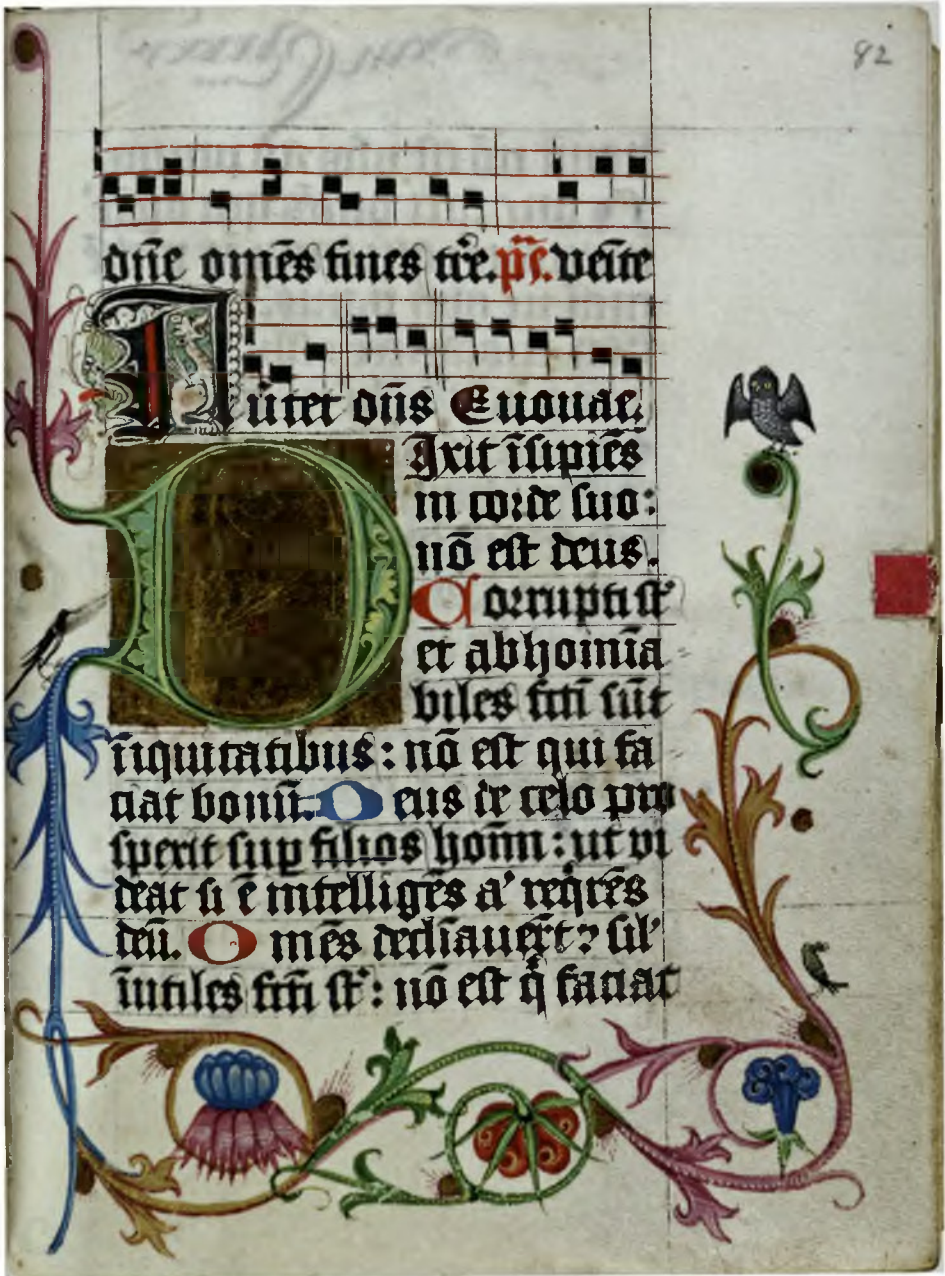 82
dn̄e om̄es fines tr̄re. ps̄. venīte
Auertet dn̄s Euouae.
Dixit īsipiēs
in corde suo:
nō est deus.
Corrupti st̄
et abhominā
biles fc̄ti sūt
īniquitatibus: nō est qui fa
ciat bonū. Deus de celo pro
sperit sup filios hom̄: ut vi
deat si ē intelligēs aʼ reqrēs
deū. Omēs declīauer̄t ⁊ silʼ
īutiles fc̄ti st̄: nō est q̇ faciat